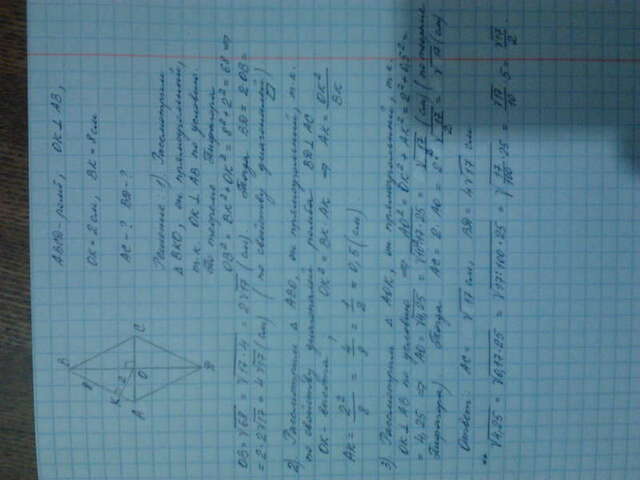 ABCD - ромб, OK ⊥ AB,
OK = 2 см, BK = 8 см
AC - ? BD - ?
Решение: 1). Рассмотрим
Δ BKO, он прямоугольный,
т.к. OK ⊥ AB по условию.
По теореме Пифагора
OB² = BK² + OK² = 8² + 2² = 68 ⇒
OB = √68 = √17·4 = 2√17 (см). Тогда BD = 2·OB =
= 2·2√17 = 4√17 (см) (по свойству диагоналей)
2) Рассмотрим Δ ABO, он прямоугольный, т.к.
по свойству диагоналей ромба BD ⊥ AC
OK - высота, OK² = BK·AK ⇒ AK = OK²/BK
AK = 2²/8 = 4/8 = 1/2 = 0,5 (см)
3) Рассмотрим Δ AOK, он прямоугольный, т.к.
OK ⊥ AB по условию ⇒ AO² = OK² + AK² = 2² + 0,5² =
= 4,25 ⇒ AO = √4,25 = √0,17·25 = √17/2 (см) (по теореме
Пифагора). Тогда AC = 2·AO = 2·√17/2 = √17 (см)
Ответ: AC = √17 см, BD = 4√17 см.
√4,25 = √0,17·25 = √17:100·25 = √17/100·25 = √17/10·5 = √17/2.
B
8
K
2
O
A
C
D